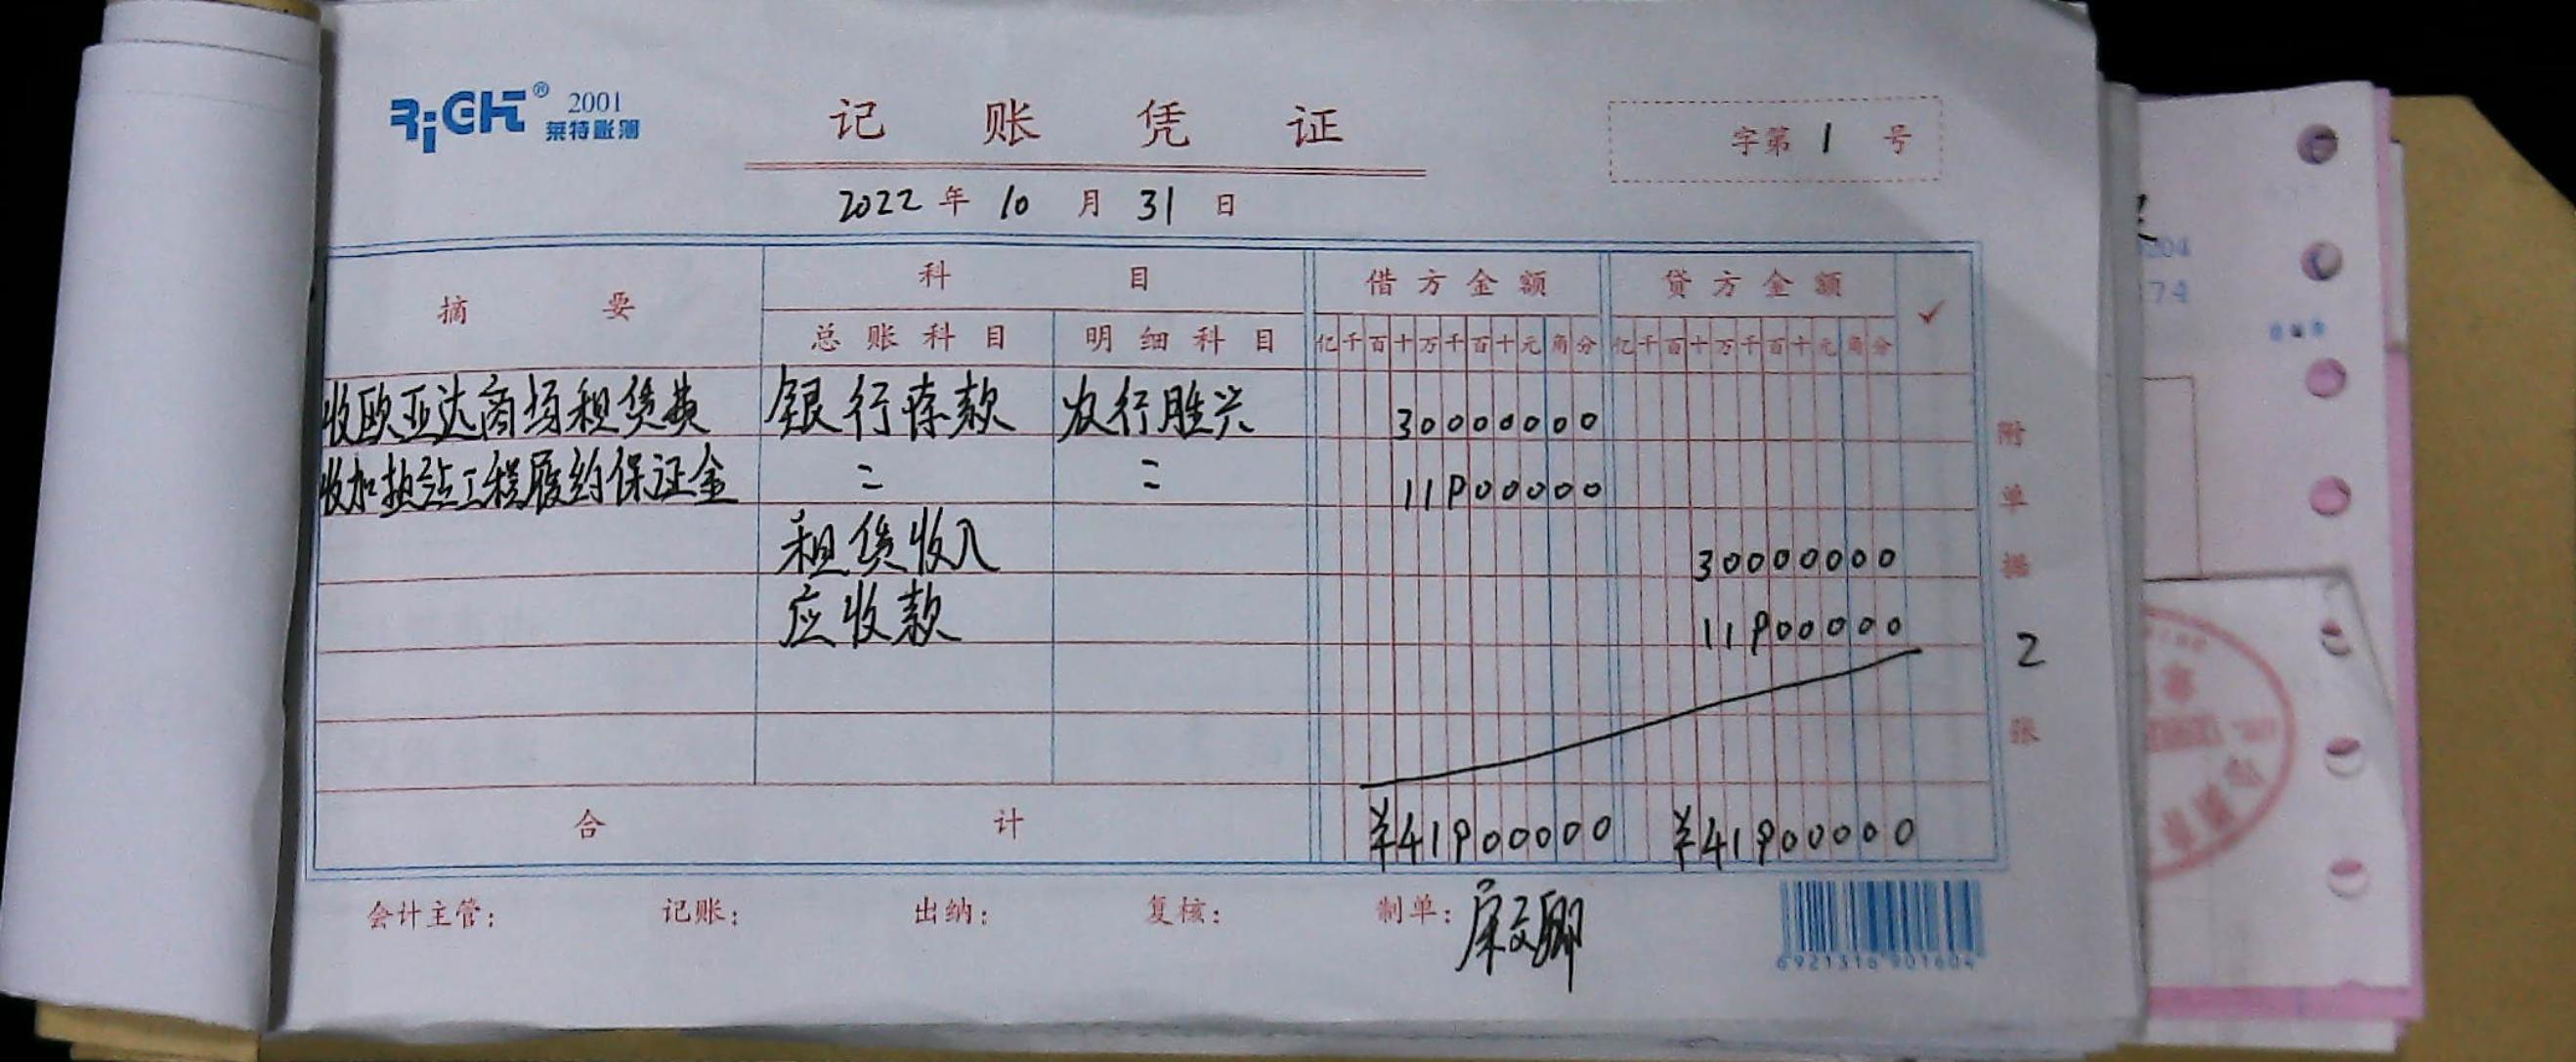 RiGHT® 2001
莱特账簿
记账凭证
字第 1 号
2022 年 10 月 31 日
摘要 科目 借方金额 贷方金额 ✓
总账科目 明细科目 亿千百十万千百十元角分 亿千百十万千百十元角分
收欧亚达商场租赁费 银行存款 农行胜兴 30000000
收加护站工程履约保证金 〃 〃 11900000
租赁收入 30000000
应收款 11900000
合计 ¥41900000 ¥41900000
附单据 2 张
会计主管: 记账: 出纳: 复核: 制单:
6921316901604